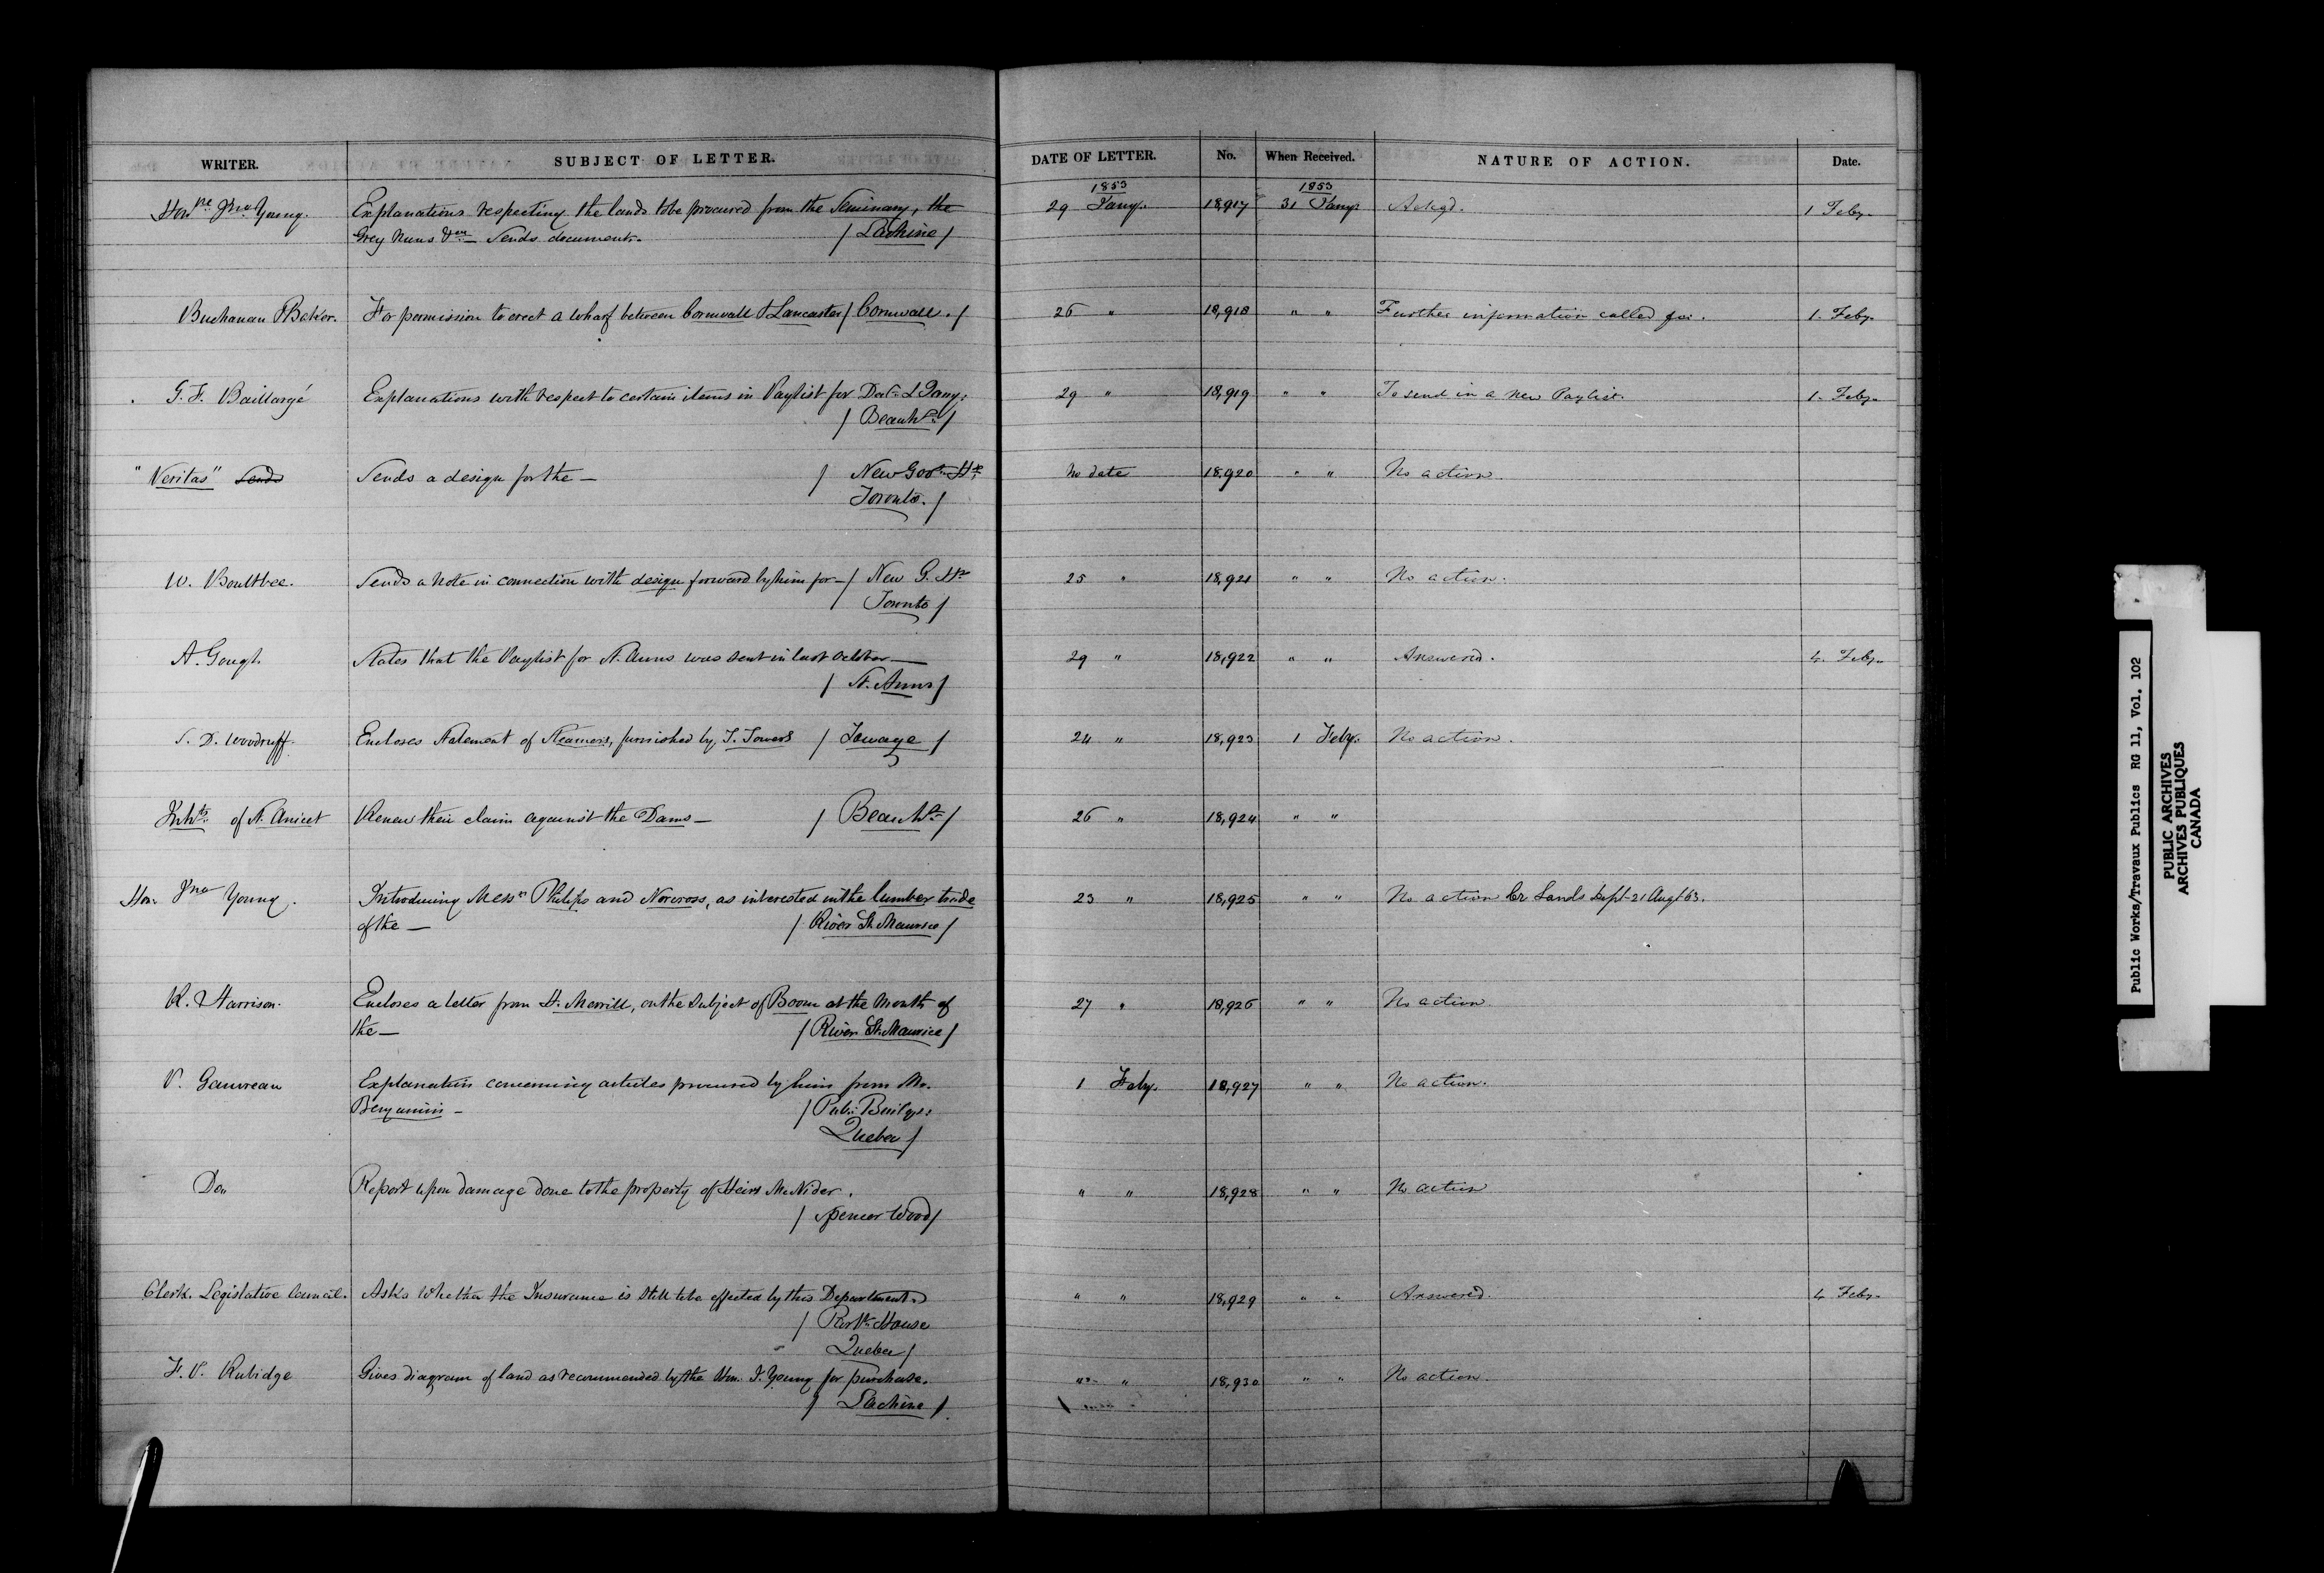 WRITER. SUBJECT OF LETTER. DATE OF LETTER. No. When Received. NATURE OF ACTION. Date.
1853 1853
Honble Jno Young. Explanations respecting the lands to be procured from the Seminary, the 29 Jany. 18,917 31 Jany. Ackgd. 1 Feby.
Grey Nuns &ca — Sends documents. / Lachine /
Buchanan & Baker. For permission to erect a wharf between Cornwall & Lancaster / Cornwall. / 26 " 18,918 " " Further information called for. 1. Feby.
G. F. Baillargé Explanations with respect to certain items in Paylist for Dec. & Jany: 29 " 18,919 " " To send in a new Paylist. 1. Feby.
/ Beauhs. /
"Veritas" Sends Sends a design for the — / New Govt. He No date 18,920 " " No action.
Toronto. /
W. Boultbee. Sends a note in connection with design forward by him for — / New G. He 25 " 18,921 " " No action.
Toronto /
A. Gough. States that the Paylist for St. Anns was sent in last October — 29 " 18,922 " " Answered. 4. Feby.
/ St. Anns /
S. D. Woodruff. Encloses Statement of Steamers, furnished by T. Towers / Towage / 24 " 18,923 1 Feby. No action.
Inhts. of St. Anicet Renew their claim against the Dams — / Beauhs. / 26 " 18,924 " "
Hon. Jno Young. Introducing Messrs Philips and Norcross, as interested in the lumber trade 23 " 18,925 " " No action Cr Lands Dept 21 Augt 63.
of the — / River St. Maurice /
R. Harrison. Encloses a letter from H. Merrill, on the subject of Boom at the Mouth of 27 " 18,926 " " No action
the — / River St. Maurice /
P. Gauvreau Explanation concerning articles procured by him from Mr. 1 Feby. 18,927 " " No action.
Benjamin — / Pub: Buildgs:
Quebec /
Do Report upon damage done to the property of Heirs McNider. " " 18,928 " " No action
/ Spencer Wood /
Clerk. Legislative Council. Asks whether the Insurance is still to be effected by this Department. " " 18,929 " " Answered. 4 Feby.
/ Parlt. House
Quebec /
F. P. Rubidge Gives diagram of land as recommended by the Hon. J. Young for purchase. " " 18,930 " " No action.
/ Lachine /
Public Works/Travaux Publics RG 11, Vol. 102
PUBLIC ARCHIVES
ARCHIVES PUBLIQUES
CANADA